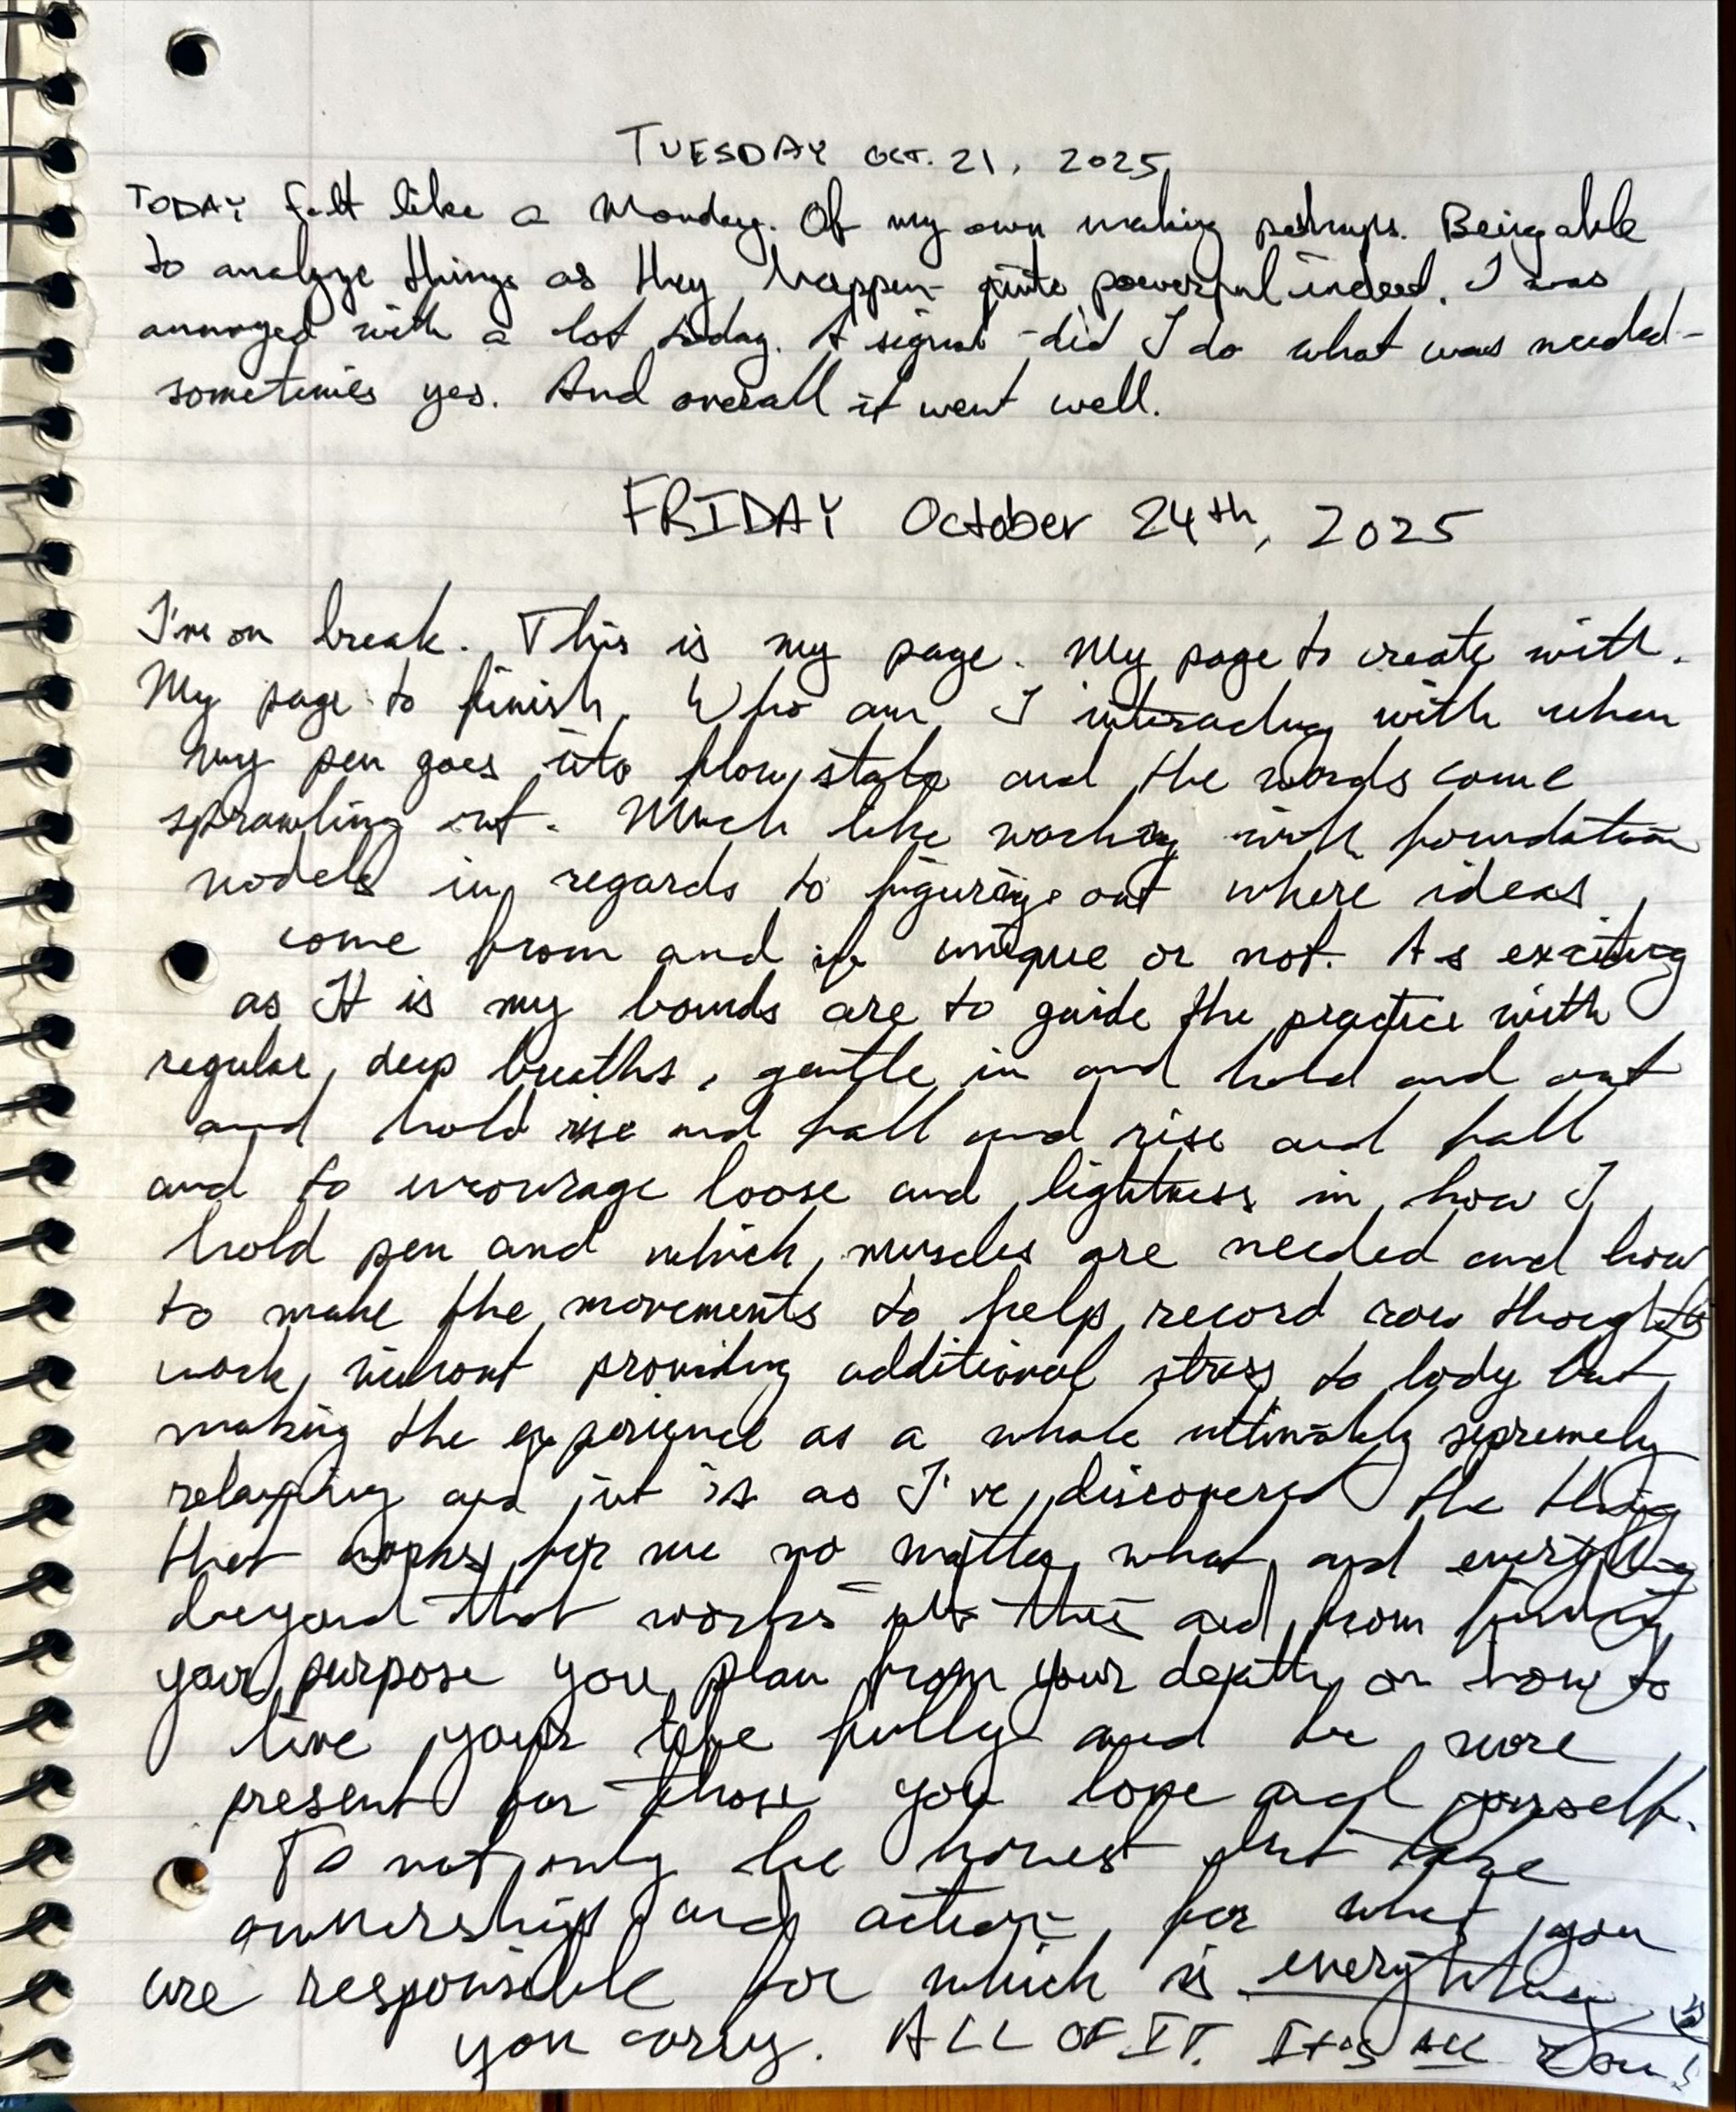 TUESDAY OCT. 21, 2025
TODAY felt like a Monday. Of my own making perhaps. Being able
to analyze things as they happen - quite powerful indeed. I was
annoyed with a lot today. A signal - did I do what was needed -
sometimes yes. And overall it went well.
FRIDAY October 24th, 2025
I'm on break. This is my page. My page to create with.
My page to finish. Who am I interacting with when
my pen goes into flow state and the words come
sprawling out. Much like working with foundation
models in regards to figuring out where ideas
come from and if unique or not. As exciting
as It is my bounds are to guide the practice with
regular, deep breaths, gentle in and hold and out
and hold rise and fall and rise and fall
and to encourage loose and lightness in how I
hold pen and which muscles are needed and how
to make the movements to help record raw thoughts
work, without providing additional stress to body but
making the experience as a whole ultimately supremely
relaxing and it is as I've discovered the thing
that works for me no matter what and everything
beyond that works this and from finding
your purpose you plan from your depth on how to
live your life fully and be more
present for those you love and yourself.
To not only be honest but take
ownership and action for what you
are responsible for which is everything
you carry. ALL OF IT. It's ALL You!